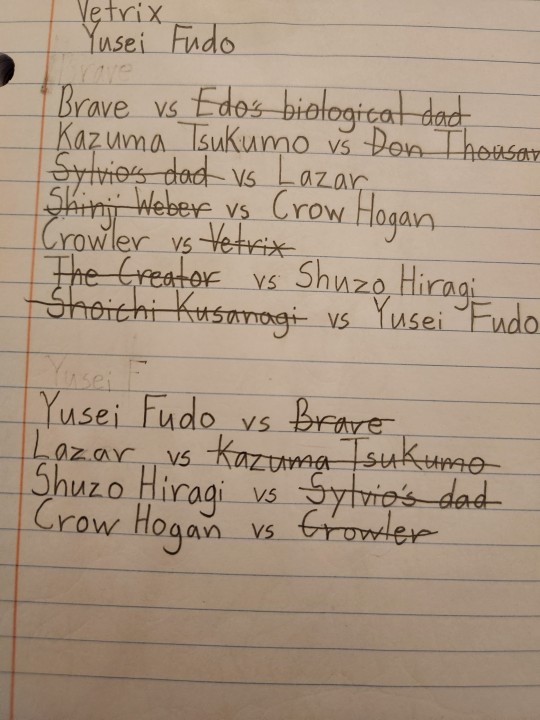 Vetrix
Yusei Fudo
Brave
Brave vs Edo's biological dad
Kazuma Tsukumo vs Don Thousan
Sylvio's dad vs Lazar
Shinji Weber vs Crow Hogan
Crowler vs Vetrix
The Creator vs Shuzo Hiragi
Shoichi Kusanagi vs Yusei Fudo
Yusei F
Yusei Fudo vs Brave
Lazar vs Kazuma Tsukumo
Shuzo Hiragi vs Sylvio's dad
Crow Hogan vs Crowler